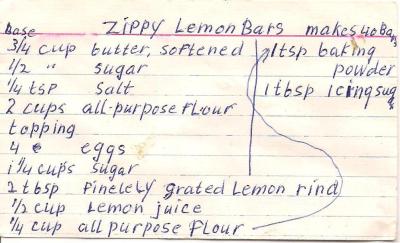 Zippy Lemon Bars makes 40 Bars
Base
3/4 cup butter, softened
1/2 " sugar
1/4 tsp salt
2 cups all-purpose flour
topping
4 eggs
1 1/4 cups sugar
2 tbsp finelely grated Lemon rind
1/2 cup Lemon juice
1/4 cup all purpose flour
1 tsp baking
powder
1 tbsp icing sug